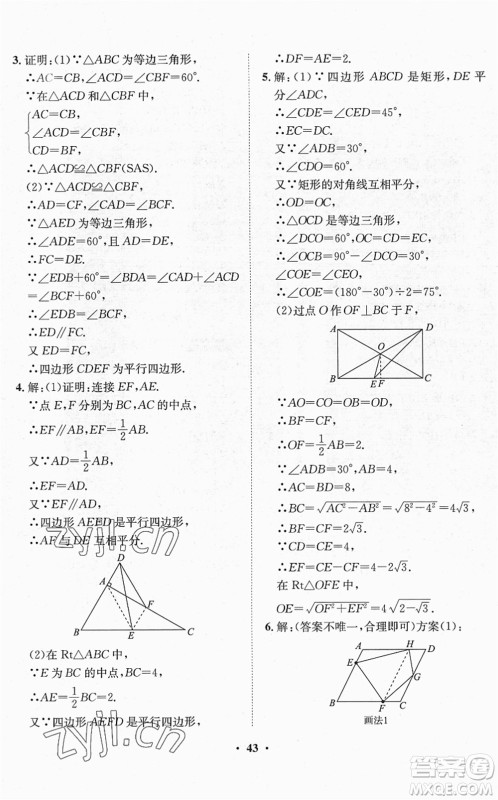 3.证明：(1)∵△ABC为等边三角形，
∴AC=CB，∠ACD=∠CBF=60°.
∵在△ACD和△CBF中，
AC=CB，
∠ACD=∠CBF，
CD=BF，
∴△ACD≌△CBF(SAS).
(2)∵△ACD≌△CBF，
∴AD=CF，∠CAD=∠BCF.
∵△AED为等边三角形，
∴∠ADE=60°，且AD=DE.
∴FC=DE.
∵∠EDB+60°=∠BDA=∠CAD+∠ACD=∠BCF+60°，
∴∠EDB=∠BCF.
∴ED∥FC.
又∵ED=FC，
∴四边形CDEF为平行四边形.
4.解：(1)证明：连接EF，AE.
∵点E，F分别为BC，AC的中点，
∴EF∥AB，EF=1/2AB.
又∵AD=1/2AB，
∴EF=AD.
又∵EF∥AD，
∴四边形AEFD是平行四边形.
∴AF与DE互相平分.
D
A
F
B
E
C
(2)在Rt△ABC中，
∵E为BC的中点，BC=4，
∴AE=1/2BC=2.
又∵四边形AEFD是平行四边形，
∴DF=AE=2.
5.解：(1)∵四边形ABCD是矩形，DE平
分∠ADC，
∴∠CDE=∠CED=45°，
∴EC=DC.
又∵∠ADB=30°，
∴∠CDO=60°.
又∵矩形的对角线互相平分，
∴OD=OC，
∴△OCD是等边三角形.
∴∠DCO=60°，∠OCB=90°-
∠DCO=30°.
∵∠OCB=30°，
∴CO=CE.
∴∠COE=(180°-30°)÷2=75°.
(2)过点O作OF⊥BC于F，
A
D
O
B
E
F
C
∵AO=CO，
∴BF=CF，
∴OF=1/2AB=2.
∵∠ADB=30°，AB=4，
∴AC=BD=8，
∴BC=√AC²-AB²=√8²-4²=4√3.
∴BF=CF=2√3.
∴CE=4，EF=4-2√3.
在Rt△OFE中，
OE=√OF²+EF²=4√2-√3.
6.解：(答案不唯一，合理即可)方案(1)：
A
H
D
E
G
B
F
C
画法1
• 43 •
zyjl.cn
zyjl.cn
作业精灵